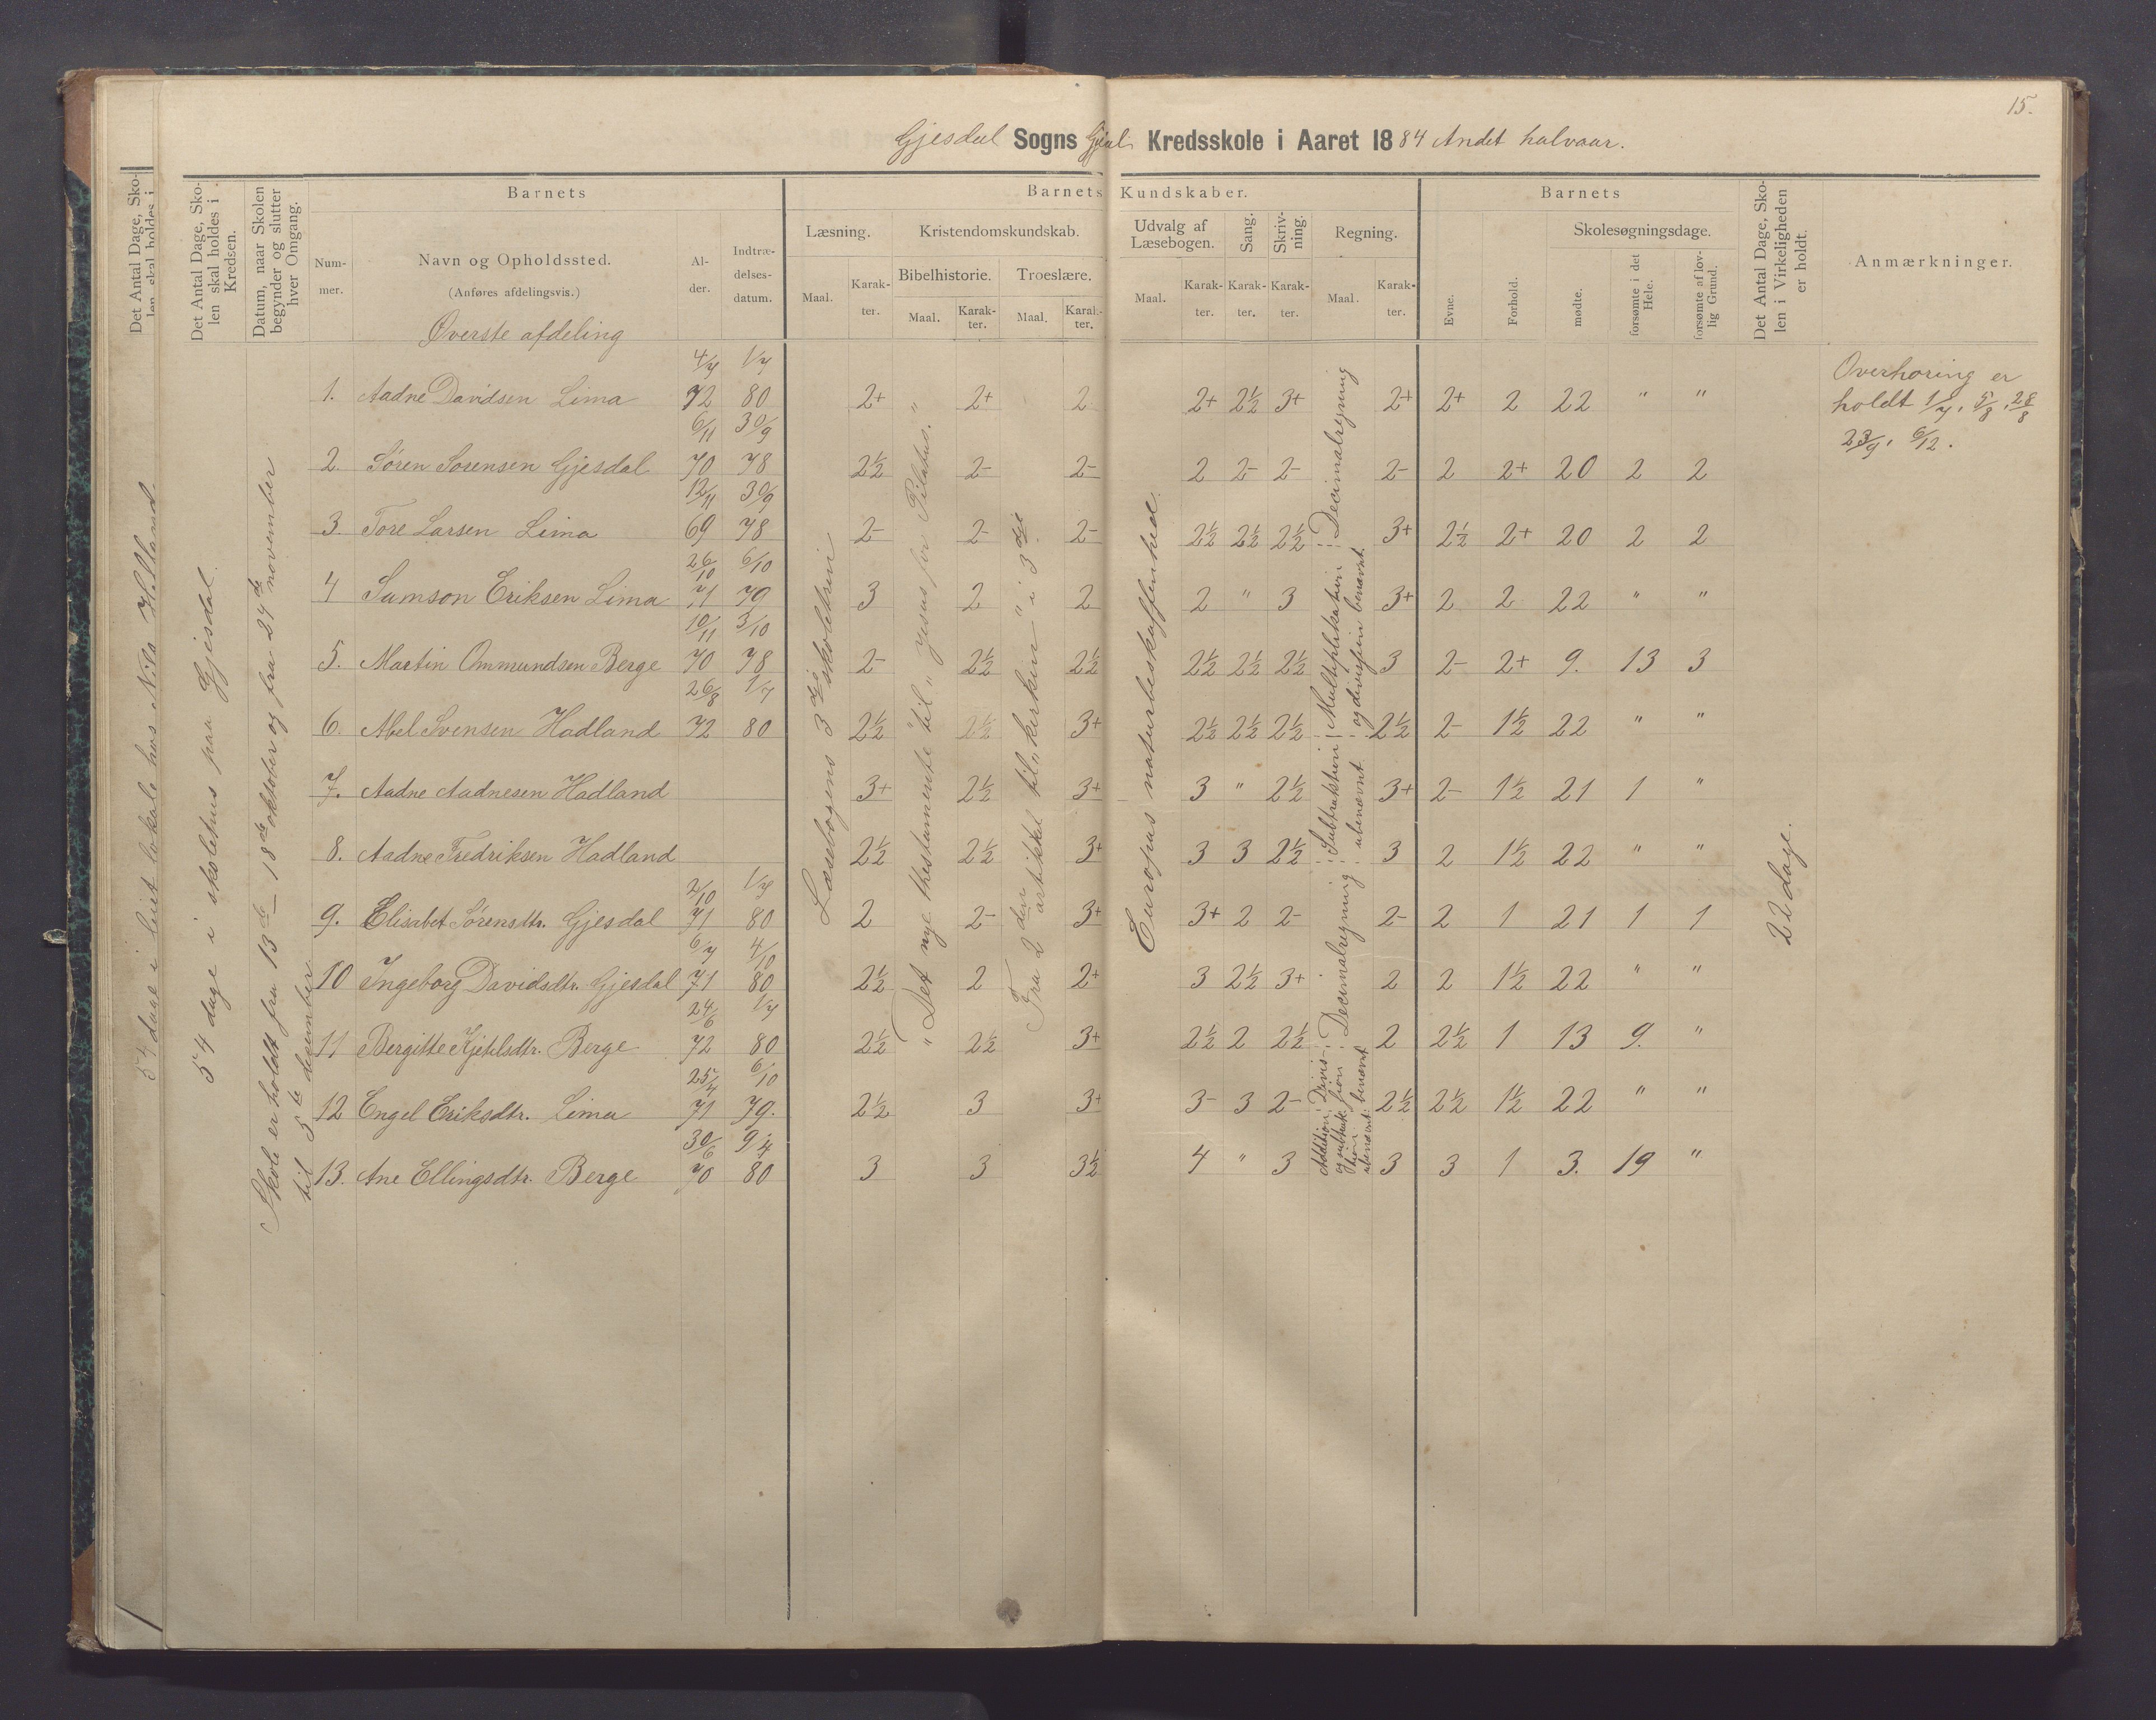 15.
Gjesdal Sogns Gjesdal Kredsskole i Aaret 1884 Andet halvaar.
Det Antal Dage, Sko-
len skal holdes i
54 dage i leiet lokale hos Nils Helland.
Det Antal Dage, Sko-
len skal holdes i
Kredsen.
Datum, naar Skolen
begynder og slutter
hver Omgang.
Barnets
Num-
mer.
Navn og Opholdssted.
(Anføres afdelingsvis.)
Al-
der.
Indtræ-
delses-
datum.
Barnets Kundskaber.
Læsning.
Maal.
Karak-
ter.
Kristendomskundskab.
Bibelhistorie.
Maal.
Karak-
ter.
Troeslære.
Maal.
Karak-
ter.
Udvalg af
Læsebogen.
Maal.
Karak-
ter.
Sang.
Karak-
ter.
Skriv-
ning.
Karak-
ter.
Regning.
Maal.
Karak-
ter.
Barnets
Evne.
Forhold.
Skolesøgningsdage.
mødte.
forsømte i det
Hele.
forsømte af lov-
lig Grund.
Det Antal Dage, Sko-
len i Virkeligheden
er holdt.
Anmærkninger.
Øverste afdeling
54 dage i skolehus paa Gjesdal.
Skole er holdt fra 13de – 18de oktober og fra 24de november
til 5te desember.
Læsebogens 3die skoletrin
"Det nye testamente til "Jesus for Pilatus."
Fra 2den artikkel til "kirken" i 3die
Europas naturbeskaffenhed.
22 dage.
1. Aadne Davidsen Lima 4/7 72 1/7 80 2+ 2+ 2 2+ 2½ 3+ Decimalregning 2+ 2+ 2 22 " "
2. Søren Sørensen Gjesdal 6/11 70 30/9 78 2½ 2- 2- 2 2- 2- 2- 2 2+ 20 2 2
3. Tore Larsen Lima 12/11 69 30/9 78 2- 2- 2- 2½ 2½ 2½ 3+ 2½ 2+ 20 2 2
4 Samson Eriksen Lima 26/10 71 6/10 79 3 2 2 2 " 3 Multiplikation og divisjon benævnt 3+ 2 2 22 " "
5. Martin Ommundsen Berge 10/11 70 3/10 78 2- 2½ 2½ 2½ 2½ 2½ 3 2- 2+ 9. 13 3
6. Abel Svensen Hadland 26/8 72 1/7 80 2½ 2½ 3+ 2½ 2½ 2½ 2½ 2- 1½ 22 " "
7. Aadne Aadnesen Hadland 3+ 2½ 3+ 3 " 2½ Subtraktion ubenævnt 3+ 2- 1½ 21 1 "
8. Aadne Fredriksen Hadland 2½ 2½ 3+ 3 3 2½ 3 2 1½ 22 " "
9. Elisabet Sørensdtr. Gjesdal 2/10 71 1/7 80 2 2- 3+ 3+ 2 2- Decimalregning 2- 2 1 21 1 1
10 Ingeborg Davidsdtr. Gjesdal 6/7 71 4/10 80 2½ 2 2+ 3 2½ 3+ 2 2 1½ 22 " "
11 Bergitte Kjetilsdtr. Berge 24/6 72 1/7 80 2½ 2½ 3+ 2½ 2 2½ 2 2½ 1 13 9. "
12 Engel Eriksdtr. Lima 25/4 71 6/10 79. 2½ 3 3+ 3- 3 2- Divisjon benævnt 2½ 2½ 1½ 22 " "
13. Ane Ellingsdtr. Berge 30/6 70 80 3 3 3½ 4 " 3 Addition og subtraktion ubenævnt 3 3 1 3. 19 "
Overhøring er
holdt 1/7, 5/8, 28/8
23/9, 6/12.